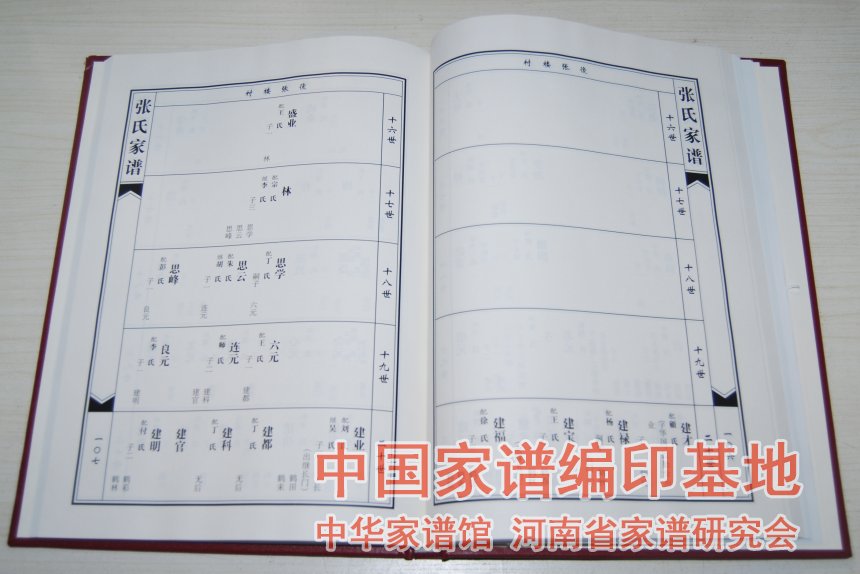 村楼张後
张氏家谱
十六世
盛业
配王氏
子一
林
十七世
林
配宗氏
继李氏
子三
思学
思云
思峰
十八世
思学
配丁氏
嗣子
六元
思云
配朱氏
继胡氏
子一
连元
思峰
配彭氏
子一
良元
十九世
六元
配王氏
子一
建都
连元
氏
子二
建科
建官
良元
配李氏
子一
建明
建业
配刘氏
继吴氏
子
(出继长门)
鹤田
鹤来
建都
配丁氏
无后
建科
配丁氏
无后
建官
建明
配付氏
子二
鹤彩
鹤林
一〇七
村楼张後
张氏家谱
十六世
十七世
十八世
十九世
建禄
配杨氏
配王氏
建福
配徐氏
中国家谱编印基地
中华家谱馆 河南省家谱研究会